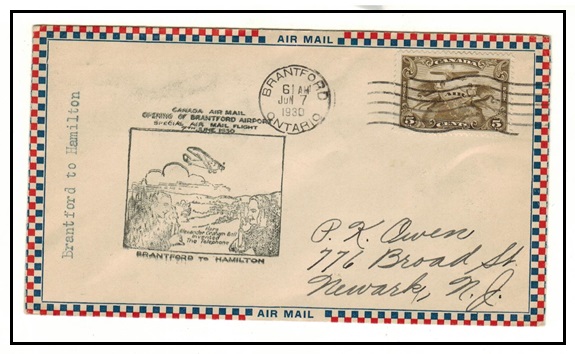 AIR MAIL
BRANTFORD
6 AM
JUN 7
1930
ONTARIO
CANADA
5 5
CENTS
CANADA AIR MAIL
OPENING OF BRANTFORD AIRPORT
SPECIAL AIR MAIL FLIGHT
7TH JUNE 1930
Here
Alexander Graham Bell
invented
The Telephone
BRANTFORD TO HAMILTON
Brantford to Hamilton
P. K. Owen
776 Broad St.
Newark, N.J.
AIR MAIL